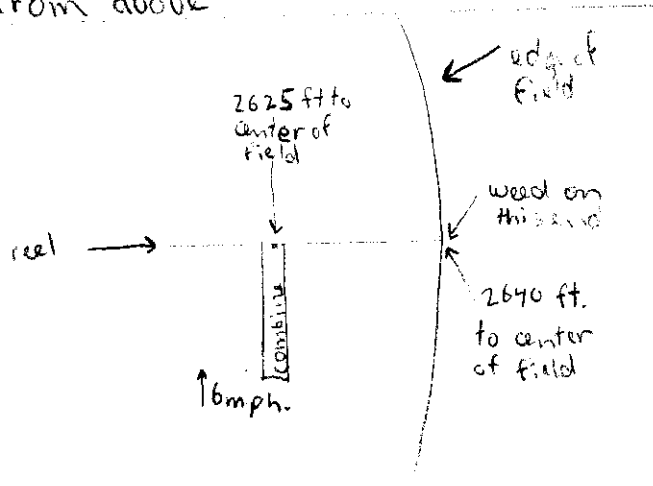 from above
edge of
field
2625 ft to
center of
field
weed on
this end
reel
combine
2640 ft.
to center
of field
6mph.